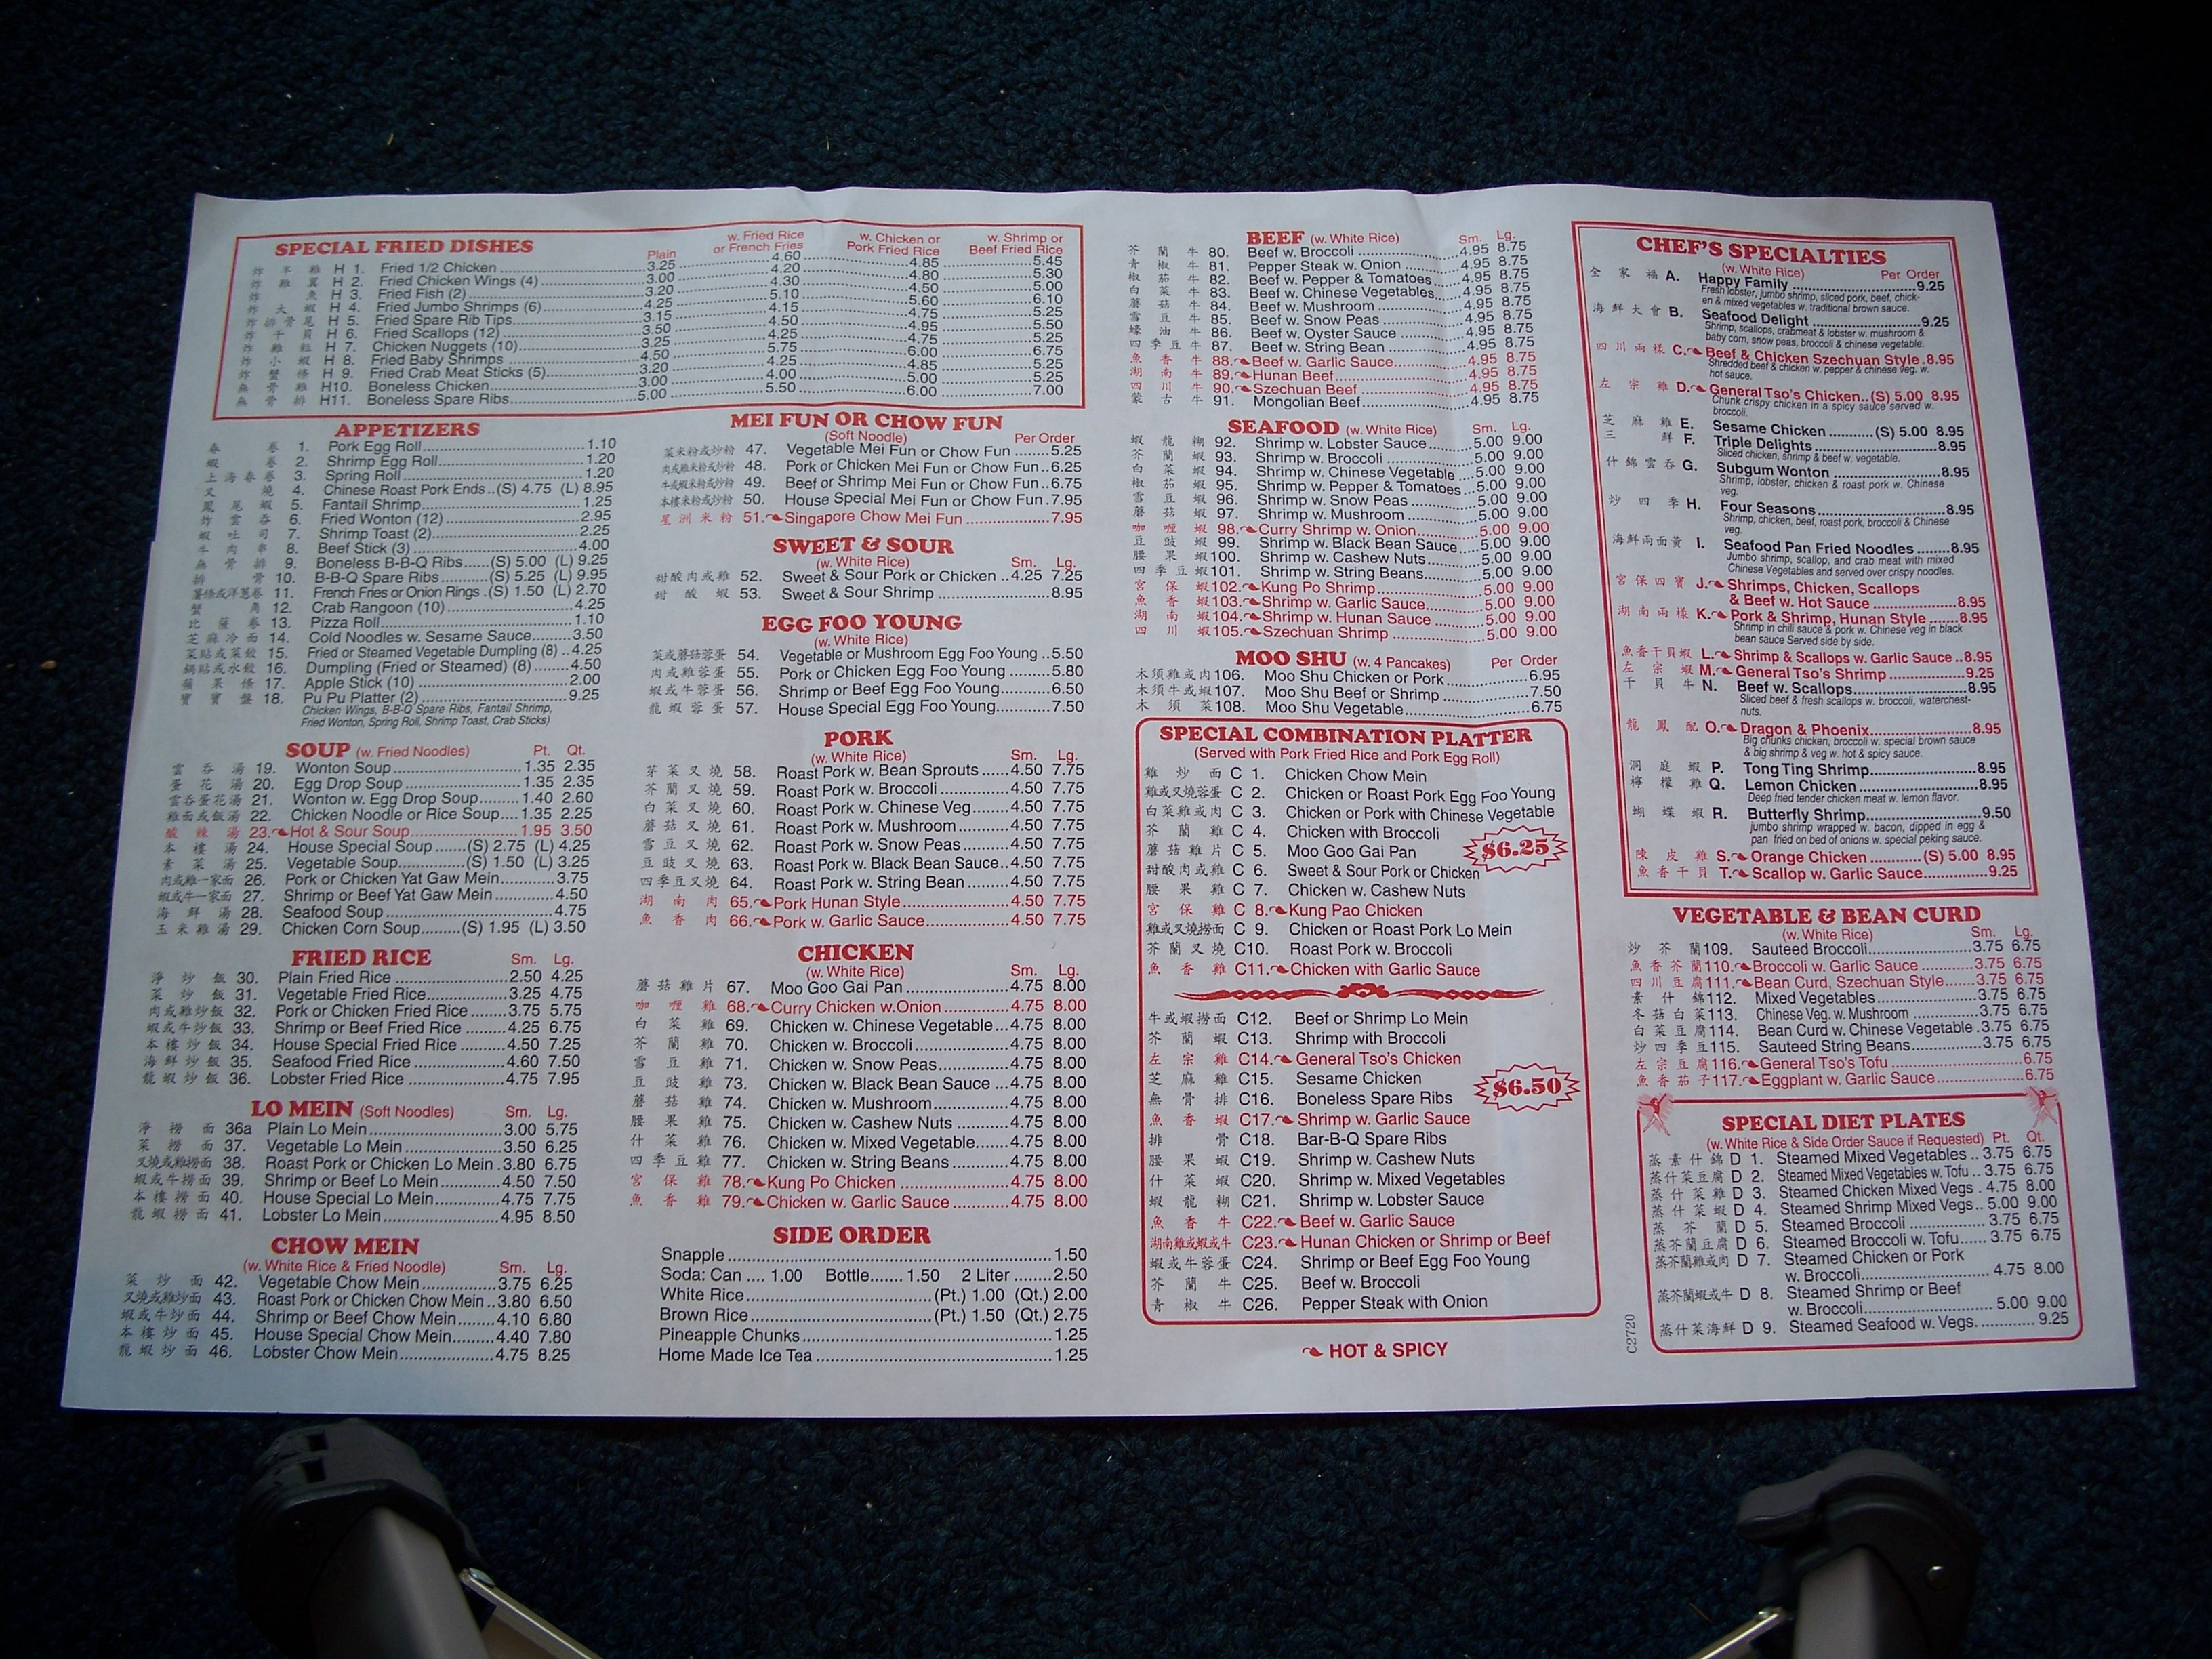 SPECIAL FRIED DISHES
Plain w. Fried Rice or French Fries w. Chicken or Pork Fried Rice w. Shrimp or Beef Fried Rice
炸半雞 H 1. Fried 1/2 Chicken 3.25 4.60 4.85 5.45
炸雞翼 H 2. Fried Chicken Wings (4) 3.00 4.20 4.80 5.30
炸魚 H 3. Fried Fish (2) 3.20 4.30 4.50 5.00
炸大蝦 H 4. Fried Jumbo Shrimps (6) 4.25 5.10 5.60 6.10
炸排骨尾 H 5. Fried Spare Rib Tips 3.15 4.15 4.75 5.25
炸干貝 H 6. Fried Scallops (12) 3.50 4.50 4.95 5.50
炸雞粒 H 7. Chicken Nuggets (10) 3.25 4.25 4.75 5.25
炸小蝦 H 8. Fried Baby Shrimps 4.50 5.75 6.00 6.75
炸蟹條 H 9. Fried Crab Meat Sticks (5) 3.20 4.25 4.85 5.25
無骨雞 H10. Boneless Chicken 3.00 4.00 5.00 5.25
無骨排 H11. Boneless Spare Ribs 5.00 5.50 6.00 7.00
APPETIZERS
春卷 1. Pork Egg Roll 1.10
蝦卷 2. Shrimp Egg Roll 1.20
上海春卷 3. Spring Roll 1.20
叉燒 4. Chinese Roast Pork Ends (S) 4.75 (L) 8.95
鳳尾蝦 5. Fantail Shrimp 1.25
炸雲吞 6. Fried Wonton (12) 2.95
蝦吐司 7. Shrimp Toast (2) 2.25
牛肉串 8. Beef Stick (3) 4.00
無骨排 9. Boneless B-B-Q Ribs (S) 5.00 (L) 9.25
排骨 10. B-B-Q Spare Ribs (S) 5.25 (L) 9.95
薯條或洋蔥卷 11. French Fries or Onion Rings (S) 1.50 (L) 2.70
蟹角 12. Crab Rangoon (10) 4.25
比薩卷 13. Pizza Roll 1.10
芝麻冷面 14. Cold Noodles w. Sesame Sauce 3.50
菜貼或菜餃 15. Fried or Steamed Vegetable Dumpling (8) 4.25
鍋貼或水餃 16. Dumpling (Fried or Steamed) (8) 4.50
蘋果條 17. Apple Stick (10) 2.00
寶寶盤 18. Pu Pu Platter (2) 9.25
Chicken Wings, B-B-Q Spare Ribs, Fantail Shrimp,
Fried Wonton, Spring Roll, Shrimp Toast, Crab Sticks)
SOUP (w. Fried Noodles) Pt. Qt.
雲吞湯 19. Wonton Soup 1.35 2.35
蛋花湯 20. Egg Drop Soup 1.35 2.35
雲吞蛋花湯 21. Wonton w. Egg Drop Soup 1.40 2.60
雞面或飯湯 22. Chicken Noodle or Rice Soup 1.35 2.25
酸辣湯 23. Hot & Sour Soup 1.95 3.50
本樓湯 24. House Special Soup (S) 2.75 (L) 4.25
素菜湯 25. Vegetable Soup (S) 1.50 (L) 3.25
肉或雞一家面 26. Pork or Chicken Yat Gaw Mein 3.75
蝦或牛一家面 27. Shrimp or Beef Yat Gaw Mein 4.50
海鮮湯 28. Seafood Soup 4.75
玉米雞湯 29. Chicken Corn Soup (S) 1.95 (L) 3.50
FRIED RICE Sm. Lg.
淨炒飯 30. Plain Fried Rice 2.50 4.25
菜炒飯 31. Vegetable Fried Rice 3.25 4.75
肉或雞炒飯 32. Pork or Chicken Fried Rice 3.75 5.75
蝦或牛炒飯 33. Shrimp or Beef Fried Rice 4.25 6.75
本樓炒飯 34. House Special Fried Rice 4.50 7.25
海鮮炒飯 35. Seafood Fried Rice 4.60 7.50
龍蝦炒飯 36. Lobster Fried Rice 4.75 7.95
LO MEIN (Soft Noodles) Sm. Lg.
淨撈面 36a Plain Lo Mein 3.00 5.75
菜撈面 37. Vegetable Lo Mein 3.50 6.25
叉燒或雞撈面 38. Roast Pork or Chicken Lo Mein 3.80 6.75
蝦或牛撈面 39. Shrimp or Beef Lo Mein 4.50 7.50
本樓撈面 40. House Special Lo Mein 4.75 7.75
龍蝦撈面 41. Lobster Lo Mein 4.95 8.50
CHOW MEIN
(w. White Rice & Fried Noodle) Sm. Lg.
菜炒面 42. Vegetable Chow Mein 3.75 6.25
叉燒或雞炒面 43. Roast Pork or Chicken Chow Mein 3.80 6.50
蝦或牛炒面 44. Shrimp or Beef Chow Mein 4.10 6.80
本樓炒面 45. House Special Chow Mein 4.40 7.80
龍蝦炒面 46. Lobster Chow Mein 4.75 8.25
MEI FUN OR CHOW FUN
(Soft Noodle) Per Order
菜米粉或炒粉 47. Vegetable Mei Fun or Chow Fun 5.25
肉或雞米粉或炒粉 48. Pork or Chicken Mei Fun or Chow Fun 6.25
牛或蝦米粉或炒粉 49. Beef or Shrimp Mei Fun or Chow Fun 6.75
本樓米粉或炒粉 50. House Special Mei Fun or Chow Fun 7.95
星洲米粉 51. Singapore Chow Mei Fun 7.95
SWEET & SOUR
(w. White Rice) Sm. Lg.
甜酸肉或雞 52. Sweet & Sour Pork or Chicken 4.25 7.25
甜酸蝦 53. Sweet & Sour Shrimp 8.95
EGG FOO YOUNG
(w. White Rice)
菜或蘑菇蓉蛋 54. Vegetable or Mushroom Egg Foo Young 5.50
肉或雞蓉蛋 55. Pork or Chicken Egg Foo Young 5.80
蝦或牛蓉蛋 56. Shrimp or Beef Egg Foo Young 6.50
龍蝦蓉蛋 57. House Special Egg Foo Young 7.50
PORK
(w. White Rice) Sm. Lg.
芽菜叉燒 58. Roast Pork w. Bean Sprouts 4.50 7.75
芥蘭叉燒 59. Roast Pork w. Broccoli 4.50 7.75
白菜叉燒 60. Roast Pork w. Chinese Veg. 4.50 7.75
蘑菇叉燒 61. Roast Pork w. Mushroom 4.50 7.75
雪豆叉燒 62. Roast Pork w. Snow Peas 4.50 7.75
豆豉叉燒 63. Roast Pork w. Black Bean Sauce 4.50 7.75
四季豆叉燒 64. Roast Pork w. String Bean 4.50 7.75
湖南肉 65. Pork Hunan Style 4.50 7.75
魚香肉 66. Pork w. Garlic Sauce 4.50 7.75
CHICKEN
(w. White Rice) Sm. Lg.
蘑菇雞片 67. Moo Goo Gai Pan 4.75 8.00
咖喱雞 68. Curry Chicken w.Onion 4.75 8.00
白菜雞 69. Chicken w. Chinese Vegetable 4.75 8.00
芥蘭雞 70. Chicken w. Broccoli 4.75 8.00
雪豆雞 71. Chicken w. Snow Peas 4.75 8.00
豆豉雞 73. Chicken w. Black Bean Sauce 4.75 8.00
蘑菇雞 74. Chicken w. Mushroom 4.75 8.00
腰果雞 75. Chicken w. Cashew Nuts 4.75 8.00
什菜雞 76. Chicken w. Mixed Vegetable 4.75 8.00
四季豆雞 77. Chicken w. String Beans 4.75 8.00
宮保雞 78. Kung Po Chicken 4.75 8.00
魚香雞 79. Chicken w. Garlic Sauce 4.75 8.00
SIDE ORDER
Snapple 1.50
Soda: Can 1.00 Bottle 1.50 2 Liter 2.50
White Rice (Pt.) 1.00 (Qt.) 2.00
Brown Rice (Pt.) 1.50 (Qt.) 2.75
Pineapple Chunks 1.25
Home Made Ice Tea 1.25
BEEF (w. White Rice) Sm. Lg.
芥蘭牛 80. Beef w. Broccoli 4.95 8.75
青椒牛 81. Pepper Steak w. Onion 4.95 8.75
椒茄牛 82. Beef w. Pepper & Tomatoes 4.95 8.75
白菜牛 83. Beef w. Chinese Vegetables 4.95 8.75
蘑菇牛 84. Beef w. Mushroom 4.95 8.75
雪豆牛 85. Beef w. Snow Peas 4.95 8.75
蠔油牛 86. Beef w. Oyster Sauce 4.95 8.75
四季豆牛 87. Beef w. String Bean 4.95 8.75
魚香牛 88. Beef w. Garlic Sauce 4.95 8.75
湖南牛 89. Hunan Beef 4.95 8.75
四川牛 90. Szechuan Beef 4.95 8.75
蒙古牛 91. Mongolian Beef 4.95 8.75
SEAFOOD (w. White Rice) Sm. Lg.
蝦龍糊 92. Shrimp w. Lobster Sauce 5.00 9.00
芥蘭蝦 93. Shrimp w. Broccoli 5.00 9.00
白菜蝦 94. Shrimp w. Chinese Vegetable 5.00 9.00
椒茄蝦 95. Shrimp w. Pepper & Tomatoes 5.00 9.00
雪豆蝦 96. Shrimp w. Snow Peas 5.00 9.00
蘑菇蝦 97. Shrimp w. Mushroom 5.00 9.00
咖喱蝦 98. Curry Shrimp w. Onion 5.00 9.00
豆豉蝦 99. Shrimp w. Black Bean Sauce 5.00 9.00
腰果蝦 100. Shrimp w. Cashew Nuts 5.00 9.00
四季豆蝦 101. Shrimp w. String Beans 5.00 9.00
宮保蝦 102. Kung Po Shrimp 5.00 9.00
魚香蝦 103. Shrimp w. Garlic Sauce 5.00 9.00
湖南蝦 104. Shrimp w. Hunan Sauce 5.00 9.00
四川蝦 105. Szechuan Shrimp 5.00 9.00
MOO SHU (w. 4 Pancakes) Per Order
木須雞或肉 106. Moo Shu Chicken or Pork 6.95
木須牛或蝦 107. Moo Shu Beef or Shrimp 7.50
木須菜 108. Moo Shu Vegetable 6.75
SPECIAL COMBINATION PLATTER
(Served with Pork Fried Rice and Pork Egg Roll)
雞炒面 C 1. Chicken Chow Mein
雞或叉燒蓉蛋 C 2. Chicken or Roast Pork Egg Foo Young
白菜雞或肉 C 3. Chicken or Pork with Chinese Vegetable
芥蘭雞 C 4. Chicken with Broccoli
蘑菇雞片 C 5. Moo Goo Gai Pan
$6.25
甜酸肉或雞 C 6. Sweet & Sour Pork or Chicken
腰果雞 C 7. Chicken w. Cashew Nuts
宮保雞 C 8. Kung Pao Chicken
雞或叉燒撈面 C 9. Chicken or Roast Pork Lo Mein
芥蘭叉燒 C10. Roast Pork w. Broccoli
魚香雞 C11. Chicken with Garlic Sauce
牛或蝦撈面 C12. Beef or Shrimp Lo Mein
芥蘭蝦 C13. Shrimp with Broccoli
左宗雞 C14. General Tso's Chicken
芝麻雞 C15. Sesame Chicken
$6.50
無骨排 C16. Boneless Spare Ribs
魚香蝦 C17. Shrimp w. Garlic Sauce
排骨 C18. Bar-B-Q Spare Ribs
腰果蝦 C19. Shrimp w. Cashew Nuts
什菜蝦 C20. Shrimp w. Mixed Vegetables
蝦龍糊 C21. Shrimp w. Lobster Sauce
魚香牛 C22. Beef w. Garlic Sauce
湖南雞或蝦或牛 C23. Hunan Chicken or Shrimp or Beef
蝦或牛蓉蛋 C24. Shrimp or Beef Egg Foo Young
芥蘭牛 C25. Beef w. Broccoli
青椒牛 C26. Pepper Steak with Onion
HOT & SPICY
CHEF'S SPECIALTIES
(w. White Rice) Per Order
全家福 A. Happy Family 9.25
Fresh lobster, jumbo shrimp, sliced pork, beef, chick-
en & mixed vegetables w. traditional brown sauce.
海鮮大會 B. Seafood Delight 9.25
Shrimp, scallops, crabmeat & lobster w. mushroom &
baby corn, snow peas, broccoli & chinese vegetable.
四川兩樣 C. Beef & Chicken Szechuan Style 8.95
Shredded beef & chicken w. pepper & chinese veg. w.
hot sauce.
左宗雞 D. General Tso's Chicken (S) 5.00 8.95
Chunk crispy chicken in a spicy sauce served w.
broccoli.
芝麻雞 E. Sesame Chicken (S) 5.00 8.95
三鮮 F. Triple Delights 8.95
Sliced chicken, shrimp & beef w. vegetable.
什錦雲吞 G. Subgum Wonton 8.95
Shrimp, lobster, chicken & roast pork w. Chinese
veg.
炒四季 H. Four Seasons 8.95
Shrimp, chicken, beef, roast pork, broccoli & Chinese
veg.
海鮮兩面黃 I. Seafood Pan Fried Noodles 8.95
Jumbo shrimp, scallop, and crab meat with mixed
Chinese Vegetables and served over crispy noodles.
宮保四寶 J. Shrimps, Chicken, Scallops
& Beef w. Hot Sauce 8.95
湖南兩樣 K. Pork & Shrimp, Hunan Style 8.95
Shrimp in chili sauce & pork w. Chinese veg in black
bean sauce Served side by side.
魚香干貝蝦 L. Shrimp & Scallops w. Garlic Sauce 8.95
左宗蝦 M. General Tso's Shrimp 9.25
干貝牛 N. Beef w. Scallops 8.95
Sliced beef & fresh scallops w. broccoli, waterchest-
nuts.
龍鳳配 O. Dragon & Phoenix 8.95
Big chunks chicken, broccoli w. special brown sauce
& big shrimp & veg w. hot & spicy sauce.
洞庭蝦 P. Tong Ting Shrimp 8.95
檸檬雞 Q. Lemon Chicken 8.95
Deep fried tender chicken meat w. lemon flavor.
蝴蝶蝦 R. Butterfly Shrimp 9.50
jumbo shrimp wrapped w. bacon, dipped in egg &
pan fried on bed of onions w. special peking sauce.
陳皮雞 S. Orange Chicken (S) 5.00 8.95
魚香干貝 T. Scallop w. Garlic Sauce 9.25
VEGETABLE & BEAN CURD
(w. White Rice) Sm. Lg.
炒芥蘭 109. Sauteed Broccoli 3.75 6.75
魚香芥蘭 110. Broccoli w. Garlic Sauce 3.75 6.75
四川豆腐 111. Bean Curd, Szechuan Style 3.75 6.75
素什錦 112. Mixed Vegetables 3.75 6.75
冬菇白菜 113. Chinese Veg. w. Mushroom 3.75 6.75
白菜豆腐 114. Bean Curd w. Chinese Vegetable 3.75 6.75
炒四季豆 115. Sauteed String Beans 3.75 6.75
左宗豆腐 116. General Tso's Tofu 6.75
魚香茄子 117. Eggplant w. Garlic Sauce 6.75
SPECIAL DIET PLATES
(w. White Rice & Side Order Sauce if Requested) Pt. Qt.
蒸素什錦 D 1. Steamed Mixed Vegetables 3.75 6.75
蒸什菜豆腐 D 2. Steamed Mixed Vegetables w. Tofu 3.75 6.75
蒸什菜雞 D 3. Steamed Chicken Mixed Vegs 4.75 8.00
蒸什菜蝦 D 4. Steamed Shrimp Mixed Vegs 5.00 9.00
蒸芥蘭 D 5. Steamed Broccoli 3.75 6.75
蒸芥蘭豆腐 D 6. Steamed Broccoli w. Tofu 3.75 6.75
蒸芥蘭雞或肉 D 7. Steamed Chicken or Pork
w. Broccoli 4.75 8.00
蒸芥蘭蝦或牛 D 8. Steamed Shrimp or Beef
w. Broccoli 5.00 9.00
蒸什菜海鮮 D 9. Steamed Seafood w. Vegs. 9.25
C2720